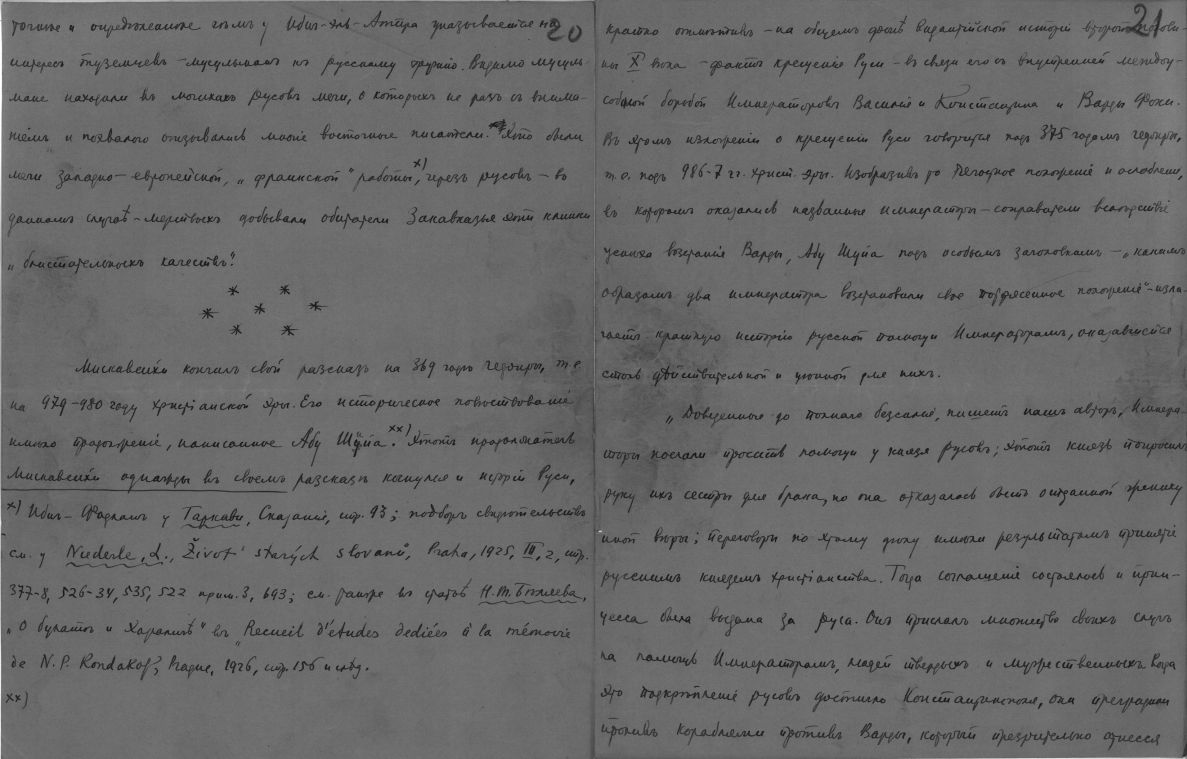 точнѣе и опредѣленнѣе чѣмъ у Ибнъ-эль-Атира указывается на
20
интересъ туземцевъ-мусульманъ къ русскому оружію. Видимо мусуль-
мане находили въ могилахъ русовъ мечи, о которыхъ не разъ съ внима-
ніемъ и похвалою отзывались многіе восточные писатели. Это были
мечи западно-европейской, „франкской" работы, x) черезъ русовъ - въ
данномъ случаѣ - мертвыхъ добывали обитатели Закавказья эти клинки
„блистательныхъ качествъ".
Мискавейхи кончилъ свой разсказъ на 369 годъ геджры, т.е.
на 979-980 году христіанской эры. Его историческое повѣствованіе
имѣло продолженіе, написанное Абу Шуйа. xx) Этотъ продолжатель
Мискавейхи однажды въ своемъ разсказѣ коснулся и исторіи Руси,
x) Ибнъ-Фадланъ у Гаркави, Сказанія, стр. 93; подборъ свидѣтельствъ
см. у Niederle, L., Život starých slovanů, Praha, 1925, III, 2, стр.
377-8, 526-34, 535, 522 прим. 3, 693; см. также въ статьѣ Н.Т. Бѣляева,
„О булатѣ и Харалугѣ" въ „Recueil d'études dediées à la mémoire
de N.P. Kondakoff", Prague, 1926, стр. 156 и слѣд.
xx)
21
кратко отмѣтивъ - на общемъ фонѣ византійской исторіи второй полови-
ны X вѣка - фактъ крещенія Руси - въ связи его съ внутренней междоу-
собной борьбой Императоровъ Василія и Константина и Варды Фоки.
Въ этомъ изложеніи о крещеніи Руси говорится подъ 375 годомъ геджры,
т.е. подъ 986-7 гг. христ. эры. Изобразивъ то тягостное положеніе и ослабленіе,
въ которомъ оказались названные императоры-соправители вслѣдствіе
успѣха возстанія Варды, Абу Шуйа подъ особымъ заголовкомъ - „какимъ
образомъ два императора возстановили свое потрясенное положеніе" - изла-
гаетъ краткую исторію русской помощи Императорамъ, оказавшейся
столь дѣйствительной и цѣнной для нихъ.
„Доведенные до полнаго безсилія, пишетъ нашъ авторъ, Импера-
торы послали просить помощи у князя русовъ; этотъ князь попросилъ
руку ихъ сестры для брака, но она отказалась быть отданной жениху
иной вѣры; переговоры по этому дѣлу имѣли результатомъ принятіе
русскимъ княземъ христіанства. Тогда соглашеніе состоялось и прин-
цесса была выдана за руса. Онъ прислалъ множество своихъ слугъ
на помощь Императорамъ, людей твердыхъ и мужественныхъ. Когда
это подкрѣпленіе русовъ достигло Константинополя, они преградили
проливъ кораблями противъ Варды, который презрительно отнесся